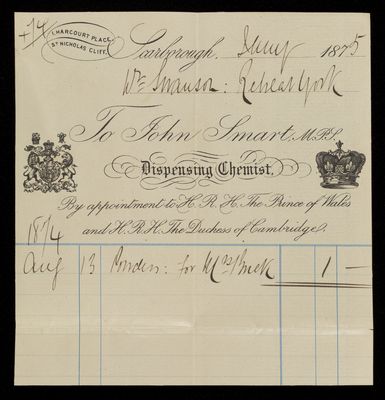 +14
1, HARCOURT PLACE,
ST NICHOLAS CLIFF.
Scarborough, 1875
Wm Swanson:
To John Smart, M.P.S.
Dispensing Chemist.
By appointment to H.R.H. The Prince of Wales
and H.R.H. The Duchess of Cambridge.
1874
Aug 13 for Mrs Buck 1 —